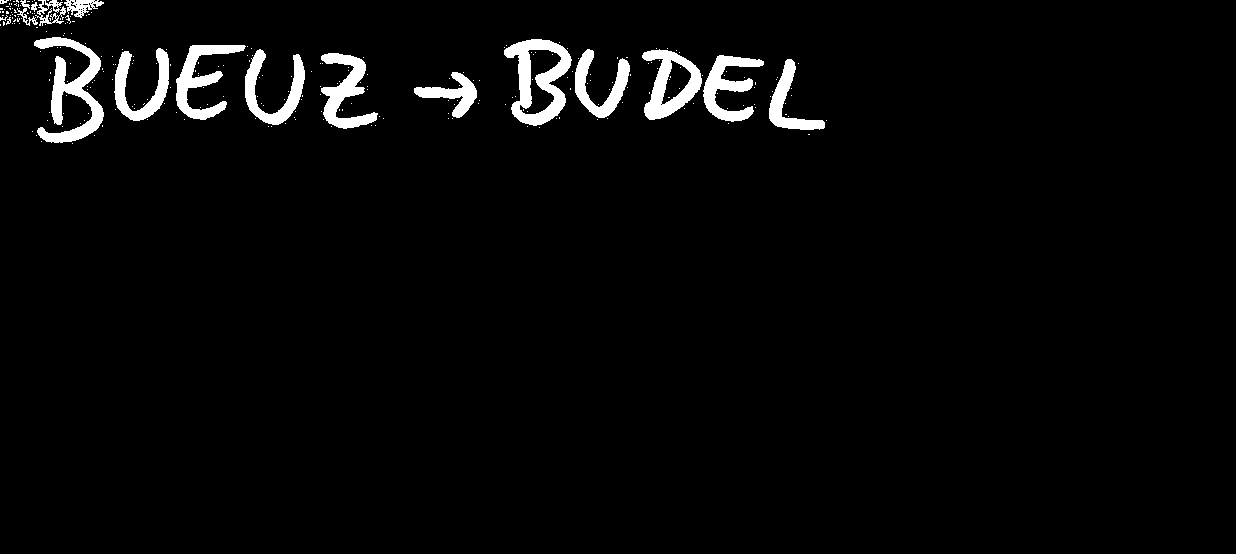 BUEUZ → BUDEL